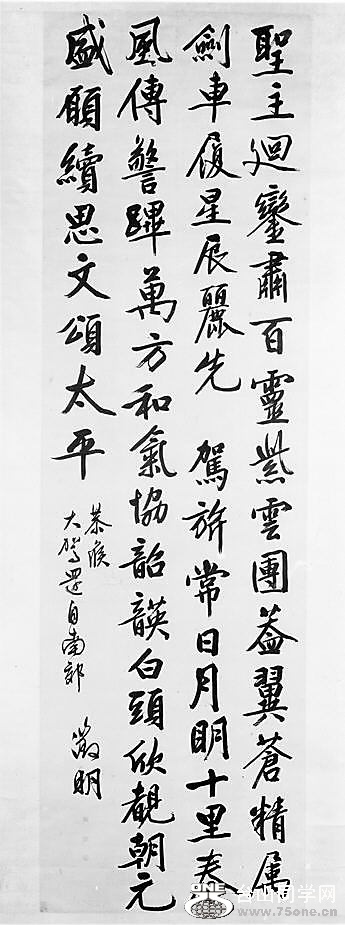 聖主廻鑾肅百靈紫雲團蓋翼蒼精属
劍車履星辰麗先 駕旂常日月明十里春
風傳警蹕萬方和氣協韶韺白頭欣覩朝元
盛願續思文頌太平
恭候
大駕還自南郊
徵明
台山同学网
www.75one.cn